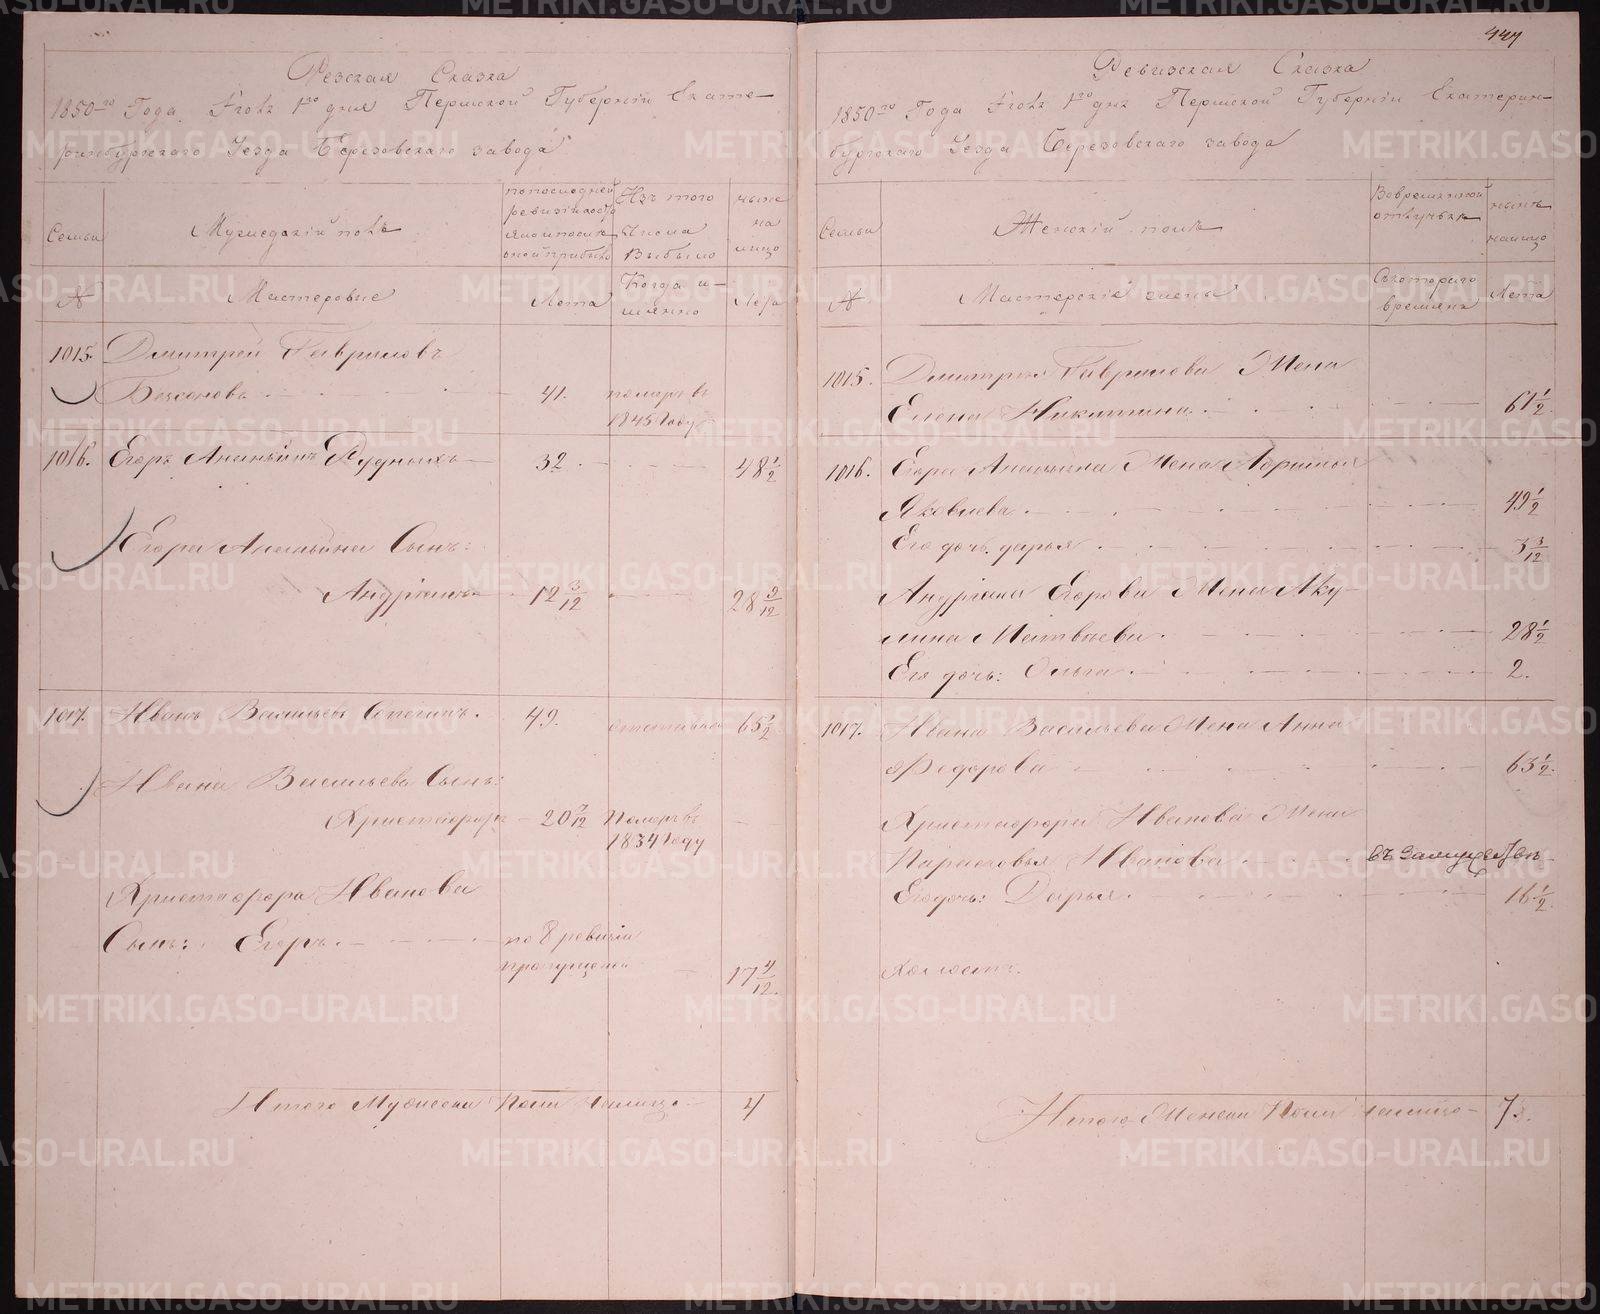 447
Резская Сказка
1850 го Года Iюля 1 го дня Пермской Губернiи Екате-
ринбургскаго Уезда Березовскаго завода
Семьи
Мужескiй полъ
по последней
ревизiи
Изъ того
числа
Выбыло
ныне
на
лицо
№
Мастеровые
Лета
Когда и-
мянно
Лета
1015. Дмитрей Гавриловъ
Безсоновъ 41. померъ въ
1845 Году
1016. Егоръ Ананьинъ Рудныхъ 32 48 1/2
Егора Ананьина Сынъ:
Андрiянъ 12 3/12 28 9/12
1017. Иванъ Васильевъ 49. 65 1/2
Ивана Васильева Сынъ:
Христофоръ 20 7/12 Померъ въ
1834 Году
Христофора Иванова
Сынъ: Егоръ по 8 ревизiи
пропущеной 17 4/12.
Итого Мужеска Пола Налицо 4
Ревизская Сказка
1850 го Года Iюля 1 го дня Пермской Губернiи Екатерин-
бургскаго Уезда Березовскаго завода
Семьи
Женскiй полъ
Во временной
отлучке
ныне
налицо
№
Мастерскiе жены
Съ котораго
времяни
Лета
1015. Дмитрiя Гаврилова Жена
Елена Никитина 61 1/2
1016. Егора Ананьина Жена
Яковлева 49 1/2
Его дочь дарья 3 3/12
Андрiяна Егорова Жена Аку-
лина Матвеева 28 1/2
Его дочь: Ольга 2.
1017. Ивана Васильева Жена Анна
Федорова 63 1/2.
Христофора Иванова Жена
Парасковья Иванова въ замужестве
Его дочь: Дарья 16 1/2
Холостъ.
Итого Женска Пола налицо 7.
METRIKI.GASO-URAL.RU